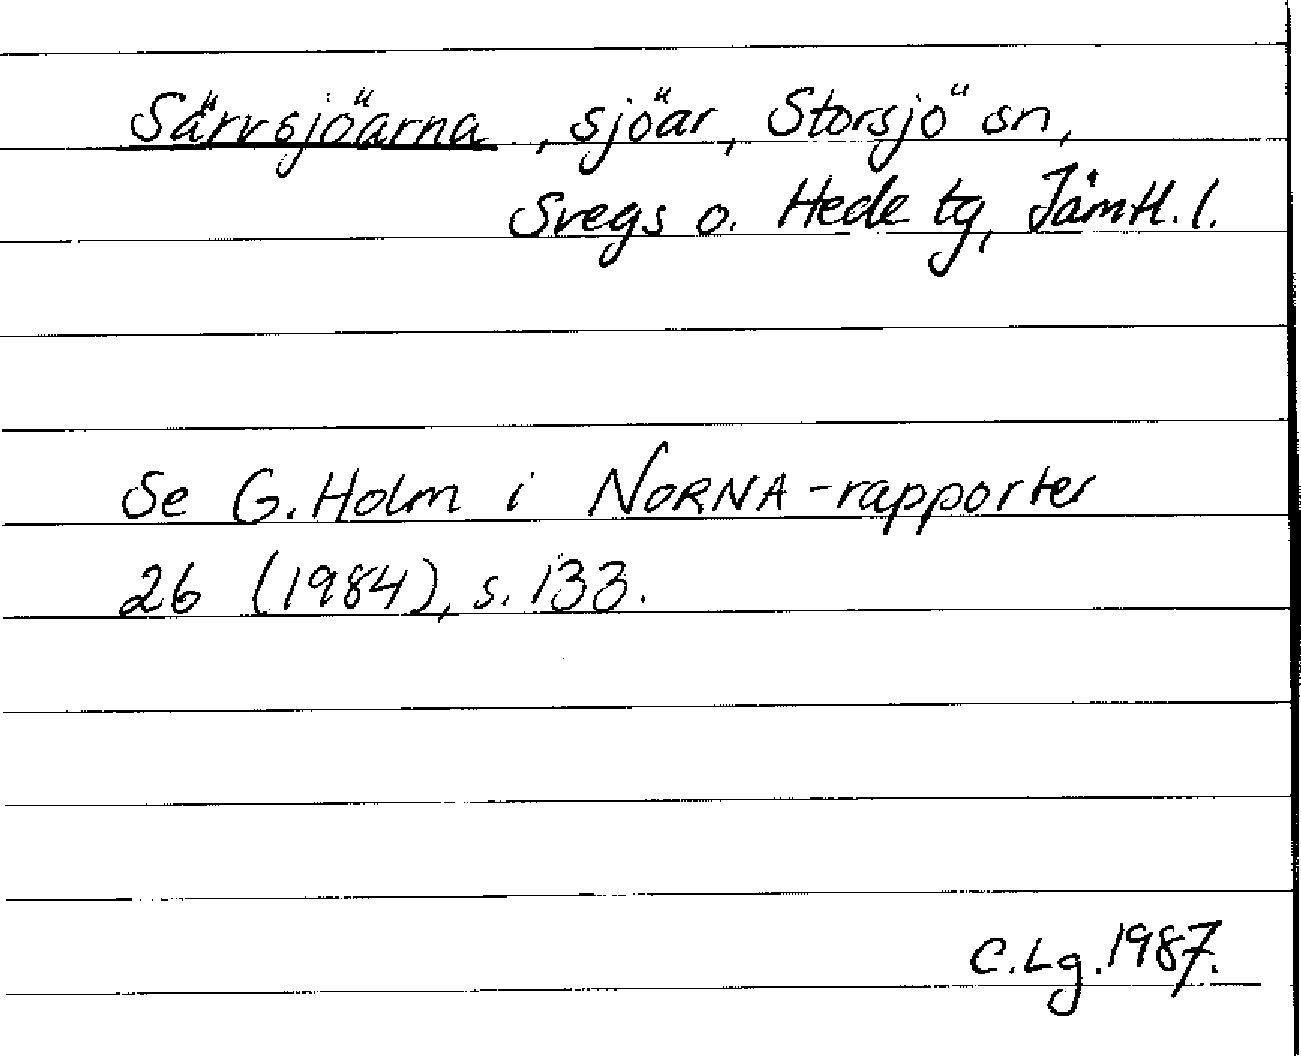 Särvsjöarna, sjöar, Storsjö sn,
Svegs o. Hede tg, Jämtl. l.
Se G. Holm i NORNA-rapporter
26 (1984), s. 133.
C. Lg. 1987.